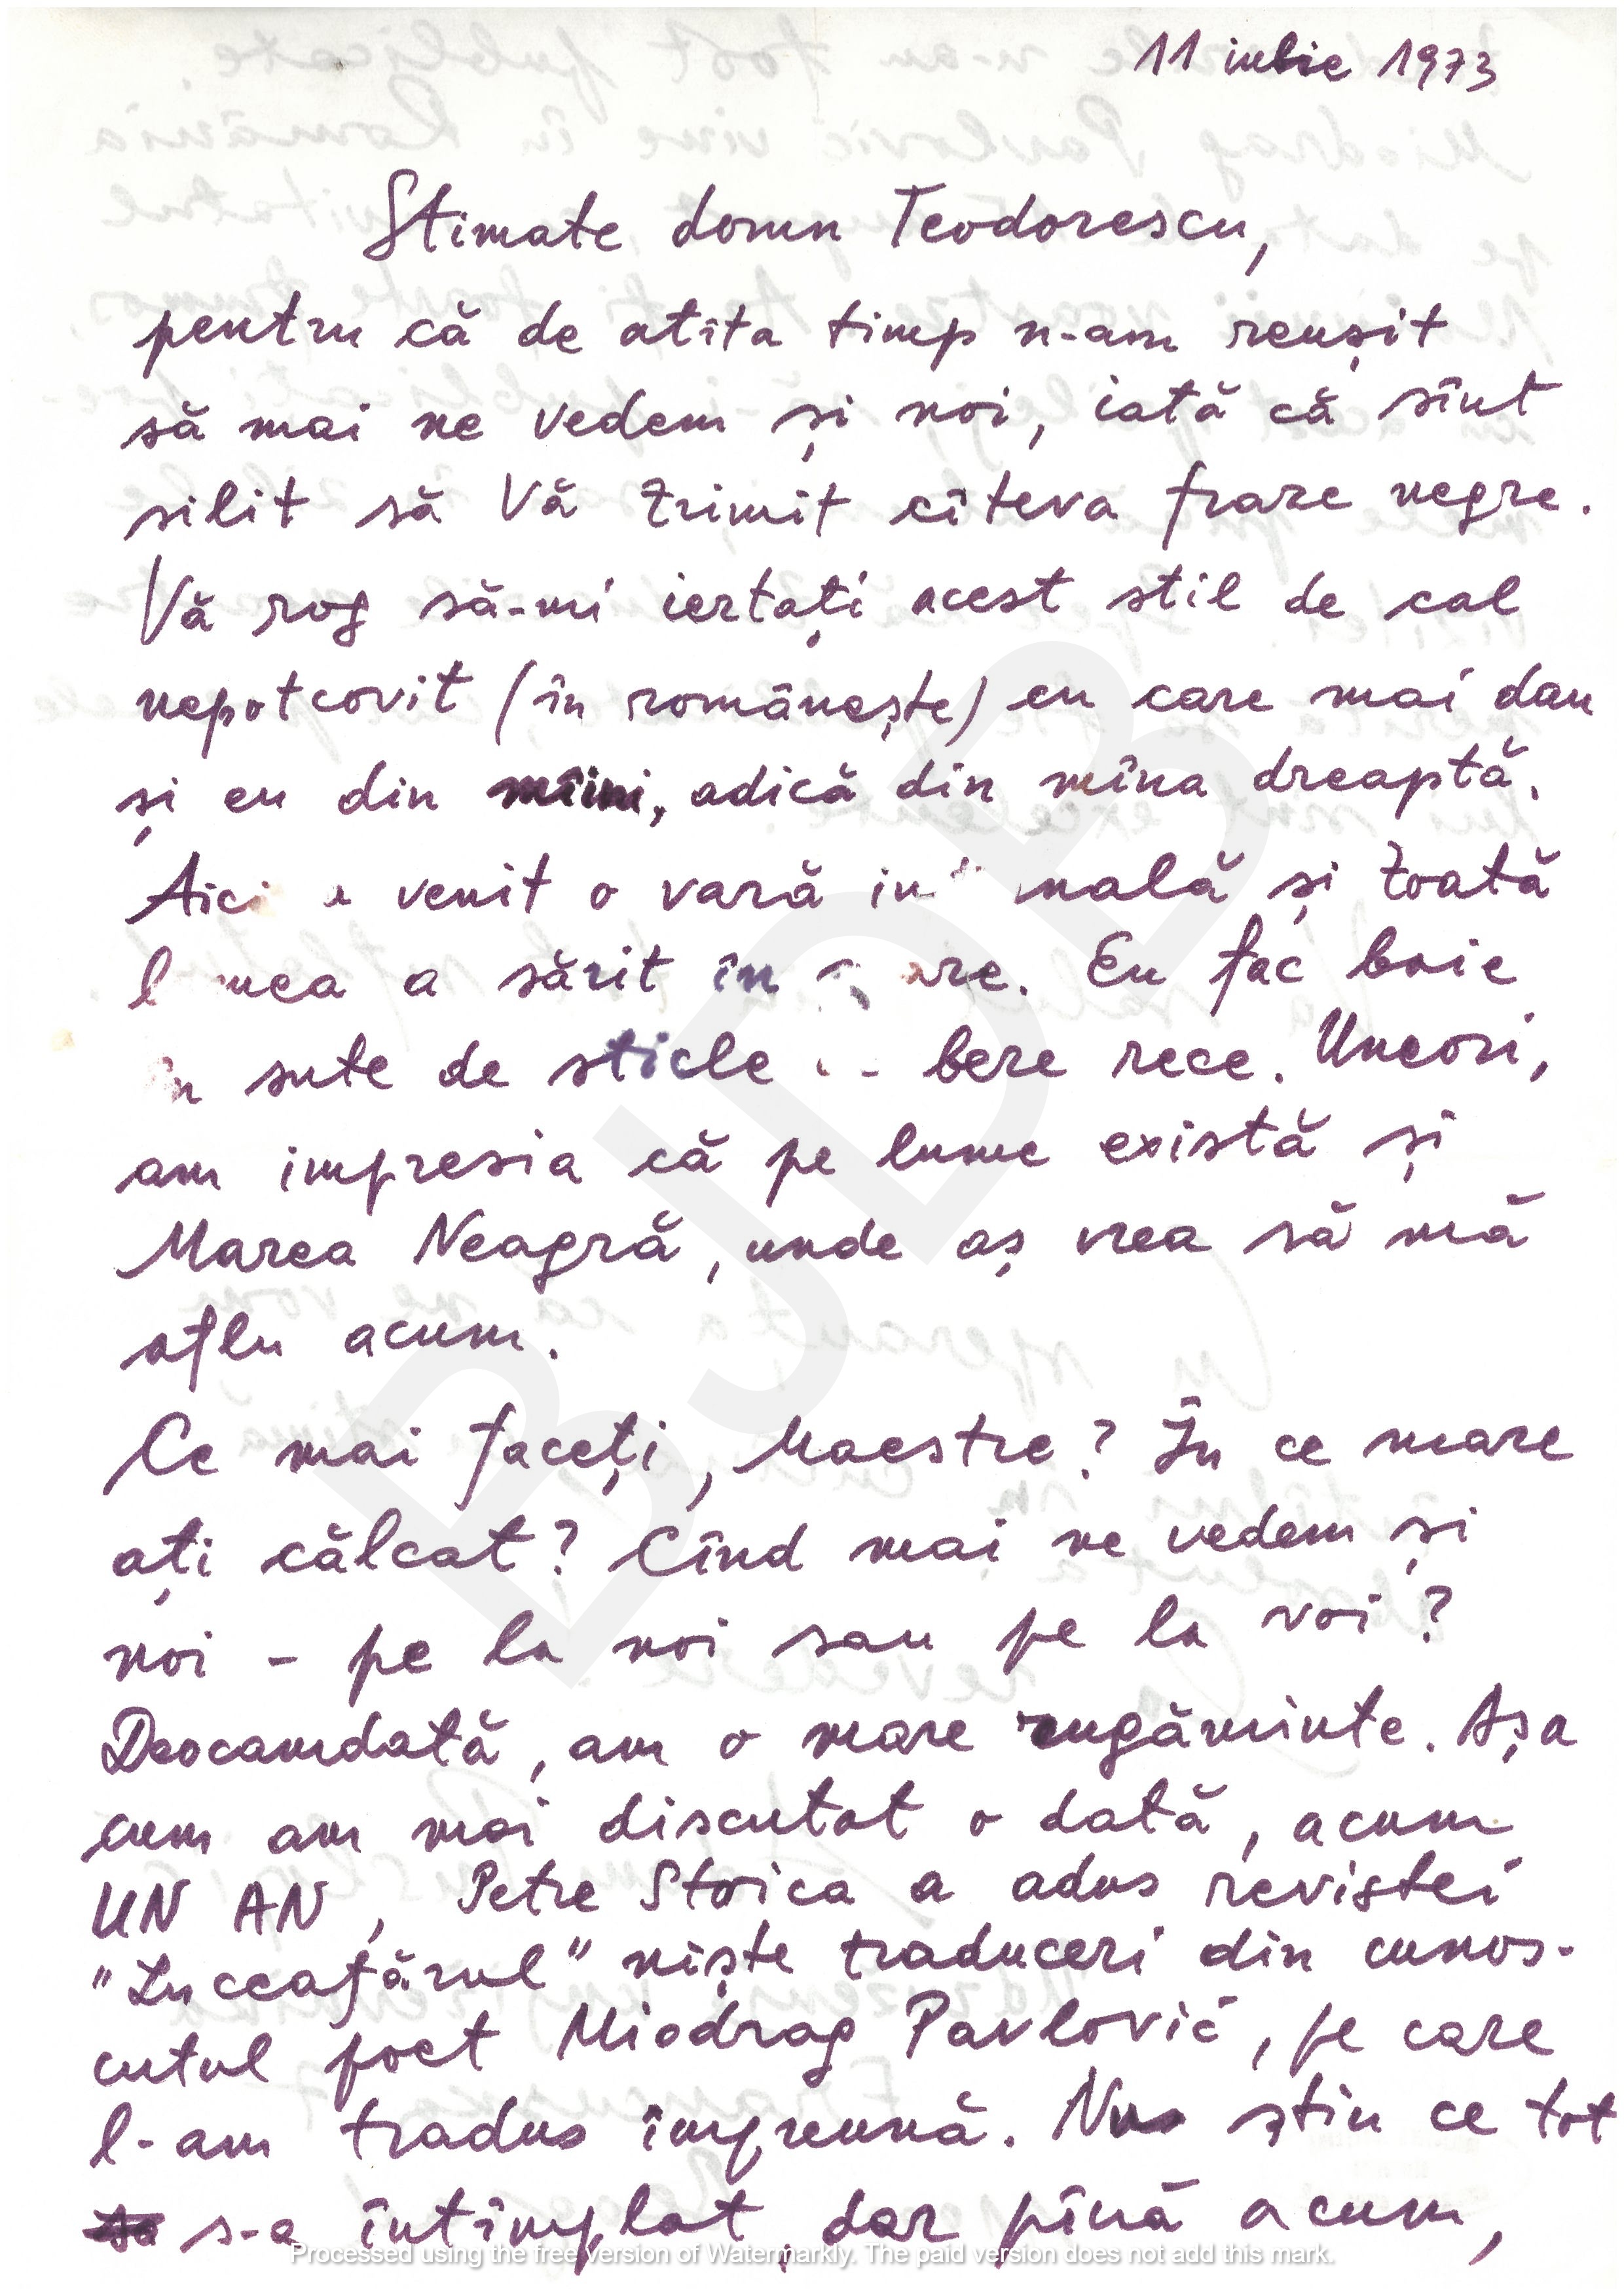 11 iulie 1973
Stimate domn Teodorescu,
pentru că de atîta timp n-am reușit
să mai ne vedem și noi, iată că sînt
silit să Vă trimit cîteva fraze negre.
Vă rog să-mi iertați acest stil de cal
nepotcovit (în românește) cu care mai dau
și eu din mîini, adică din mîna dreaptă.
Aici a venit o vară și toată
a sărit în Eu fac baie
în sute de sticle bere rece. Uneori,
am impresia că pe lume există și
Marea Neagră, unde aș vrea să mă
aflu acum.
Ce mai faceți, Maestre? În ce mare
ați călcat? Cînd mai ne vedem și
noi - pe la noi sau pe la voi?
Deocamdată, am o mare rugăminte. Așa
cum am mai discutat o dată, acum
UN AN, Petre Stoica a adus revistei
"Luceafărul" niște traduceri din cunos-
cutul poet Miodrag Pavlović, pe care
l-am tradus împreună. Nu știu ce tot
s-a întîmplat, dar pînă acum,
BJDB
Processed using the free version of Watermarkly. The paid version does not add this mark.